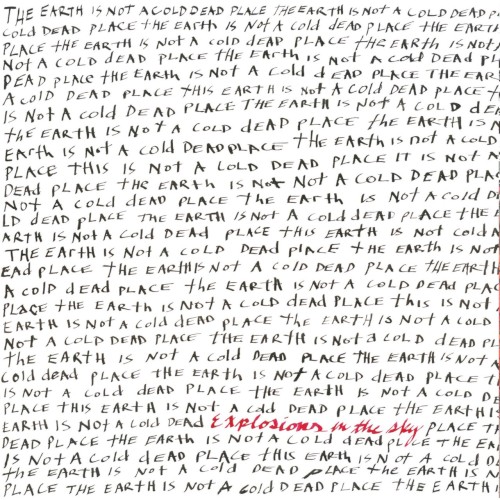 THE EARTH IS NOT A COLD DEAD PLACE THE EARTH IS NOT A COLD DEAD P
COLD DEAD PLACE THE EARTH IS NOT A COLD dEAD PLACE THE EARTH
PLACE THE EARTH IS NOT A COLD DEAD PLACE the EARTH IS NOT
NOT A COLD DEAD PLACE THE EARTH IS NOT A COLD DEAD PL
DEAD PLACE THE EARTH IS NOT A COLD dEAD PLACE THE EAR
A COLD DEAD PLACE THIS EARTH IS NOT A COLD DEAD PLACE
IS NOT A COLD DEAD PLACE THE EARTH IS NOT A COLD dE
the EARTH IS NOT A COLD dEAD PLACE the EARTH IS N
EARTH IS NOT A COLD DEAD PLACE THE EARTH IS NOT A COLD
PLACE THIS IS NOT A COLD DEAD PLACE IT IS NOT
DEAD PLACE THE EARTH IS NOT NOT A COLD DEAD PLAC
NOT A COLD DEAD PLACE THE EARTH IS NOT A COLD D
LD DEAD PLACE THE EARTH IS NOT A COLD DEAD PLACE THE
ARTH IS NOT A COLD DEAD PLACE THIS EARTH IS NOT COLD A
THE EARTH IS NOT A COLD DEAD PLACE THE EARTH IS NOT
EAD PLACE THE EARTH IS NOT A COLD DEAD PLACE THE EARTH
A COLD DEAD PLACE THE EARTH IS NOT A COLD DEAD PLAC
PLACE THE EARTH IS NOT A COLD DEAD PLACE this IS NOT
EARTH IS NOT A COLD DEAD PLACE THE EARTH IS NOT A COLD
NOT A COLD DEAD PLACE THE EARTH IS NOT A COLD DEAD PL
THE EARTH IS NOT A COLD DEAD PLACE THE EARTH IS NOT A
COLD DEAD PLACE THE EARTH IS NOT A COLD DEAD PLACE T
IS NOT A COLD DEAD PLACE THE EARTH IS NOT A COLD DE
PLACE THIS EARTH IS NOT A COLD DEAD PLACE THE EARTH IS
EARTH IS NOT A COLD DEAD Explosions in the sky PLACE T
DEAD PLACE THE EARTH IS NOT A COLD dEAD PLACE THE EA
IS NOT A COLD DEAD PLACE THIS EARTH IS NOT A COLD D
THE EARTH IS NOT A COLD DEAD PLACE THE EARTH IS N
PLACE THE EARTH IS NOT A COLD DEAD PLACE THE EARTH